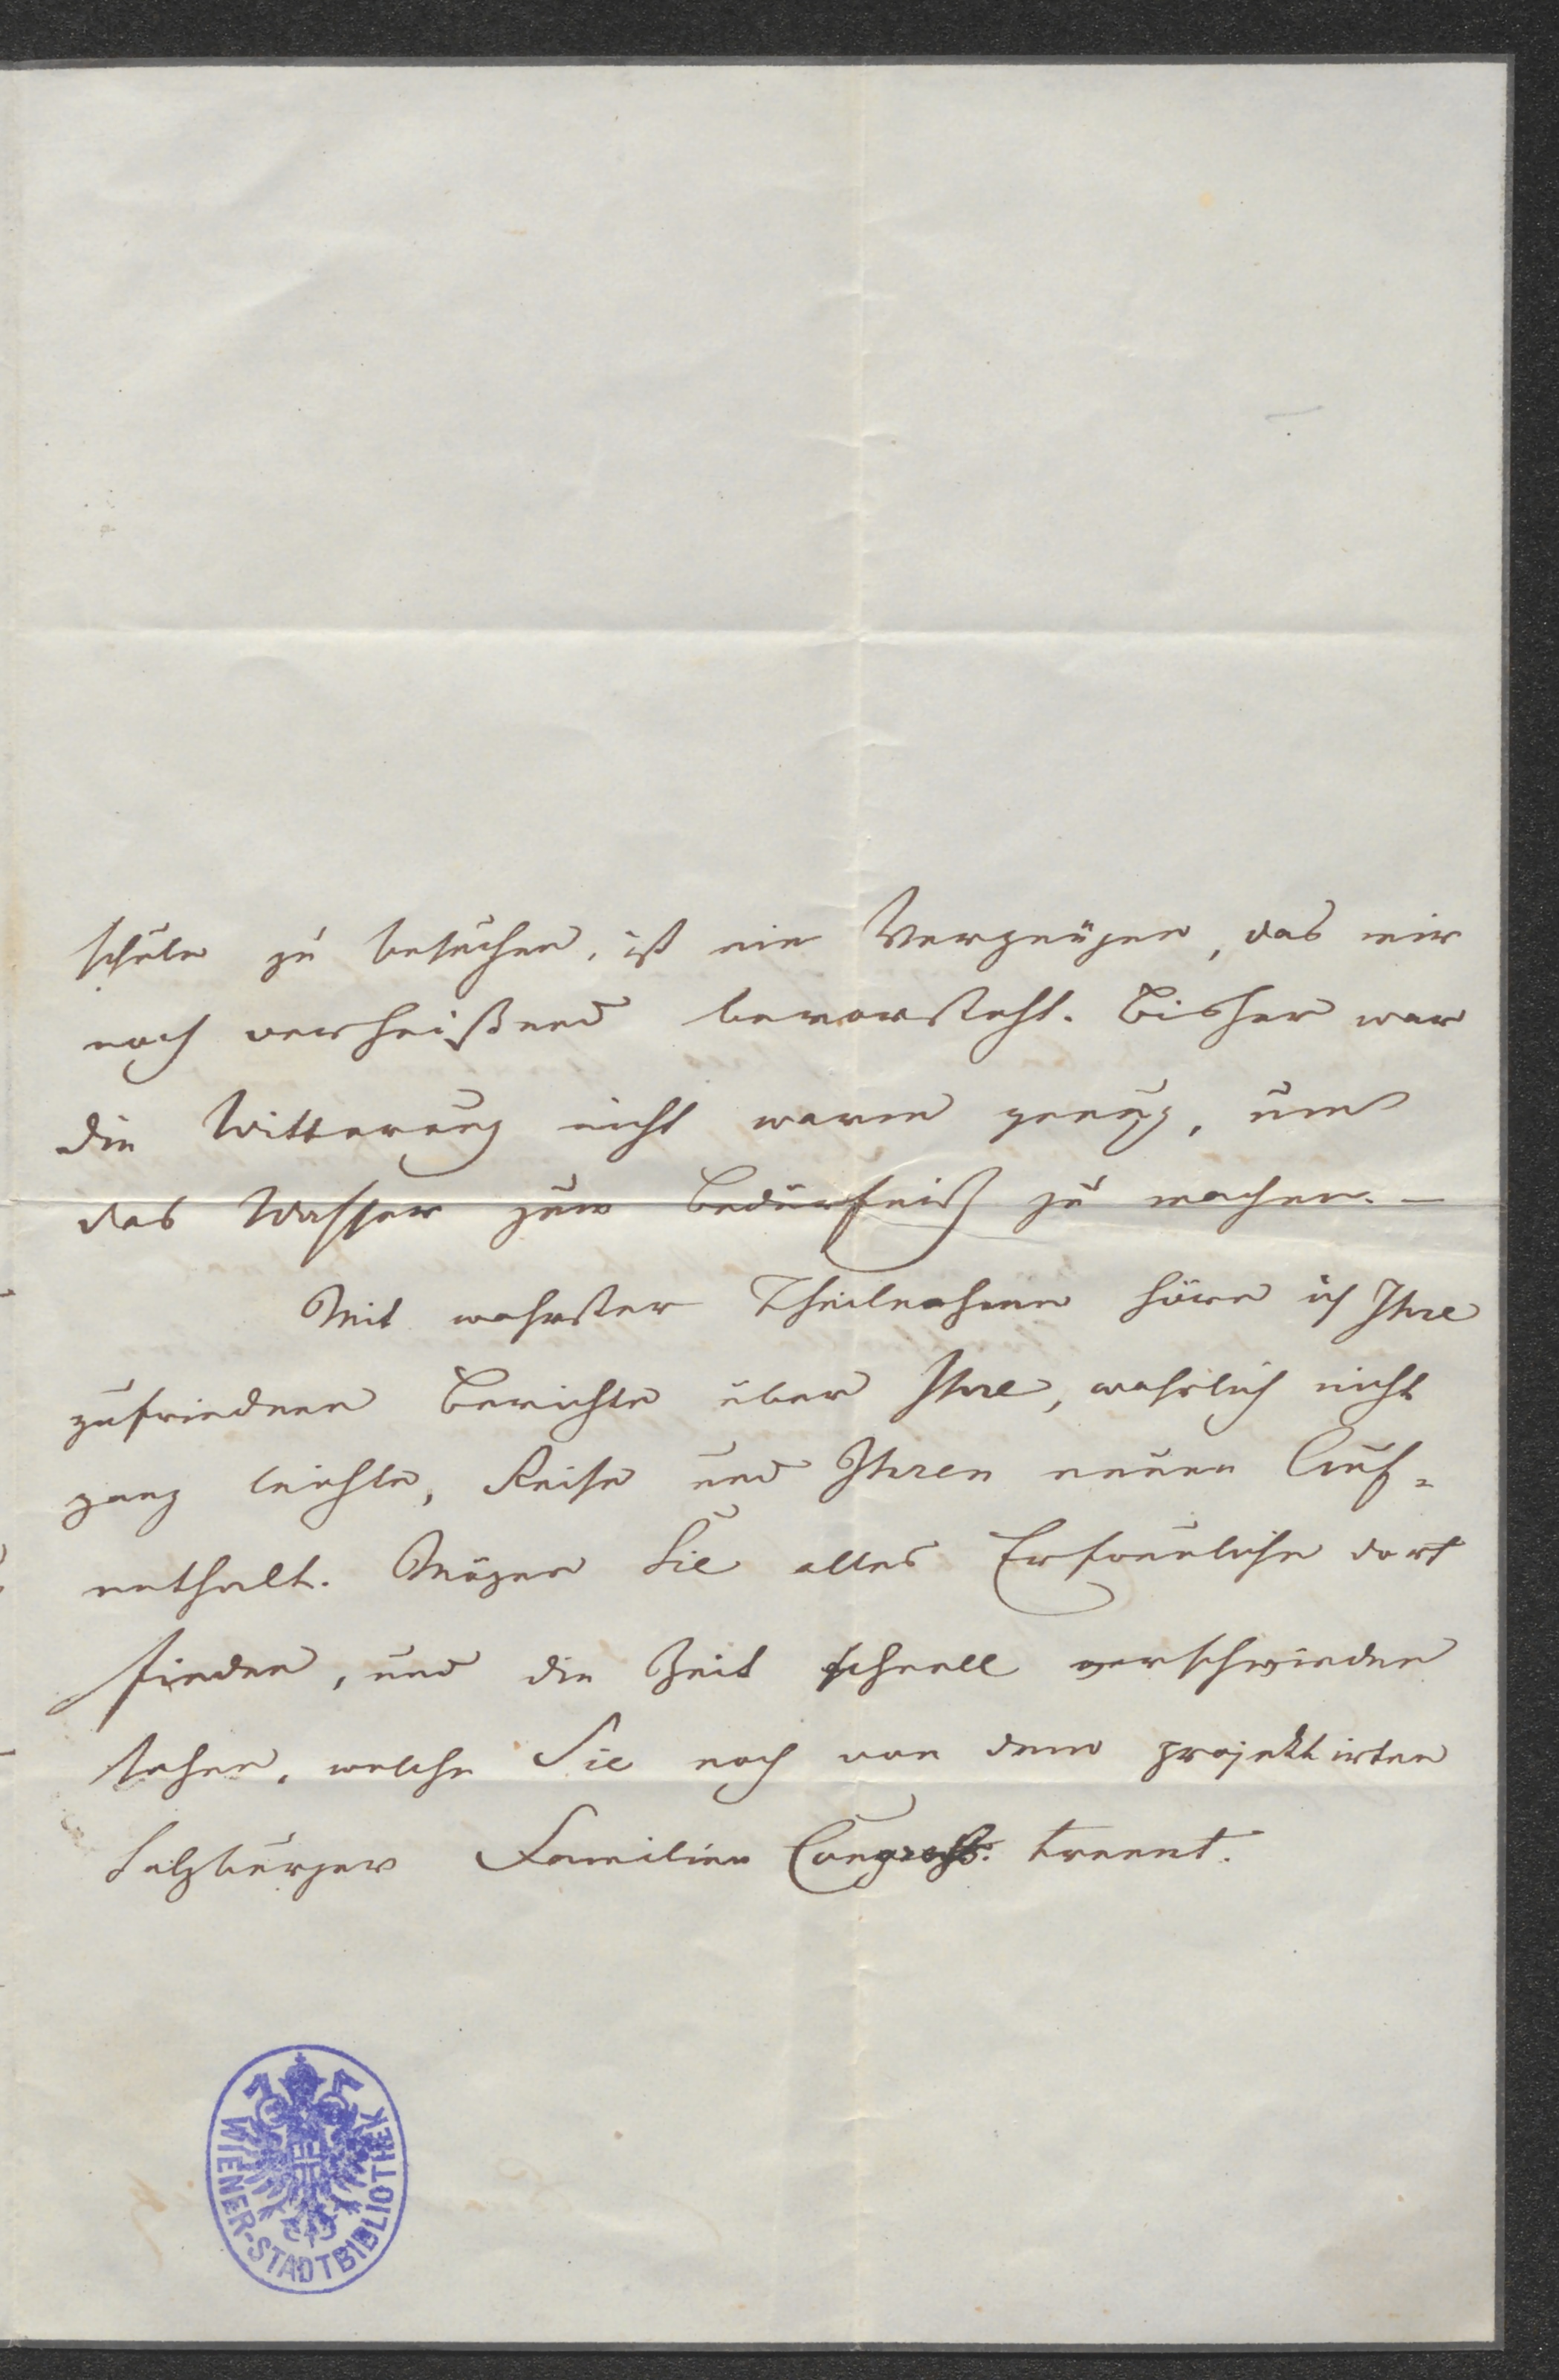 schule zu besuchen, ist ein Vergnügen, das mir
noch verheißend bevorsteht. Bisher war
die Witterung nicht warm genug, um
das Wasser zum Bedürfniß zu machen. –
Mit wahrster Theilnahme höre ich Ihre
zufriednen Berichte über Ihre, wahrlich nicht
ganz leichte, Reise und Ihren neuen Auf-
enthalt. Mögen Sie alles Erfreuliche dort
finden, und die Zeit schnell verschwinden
sehen, welche Sie noch von dem projektirten
Salzburger Familien Congreß trennt.
WIENER-STADTBIBLIOTHEK